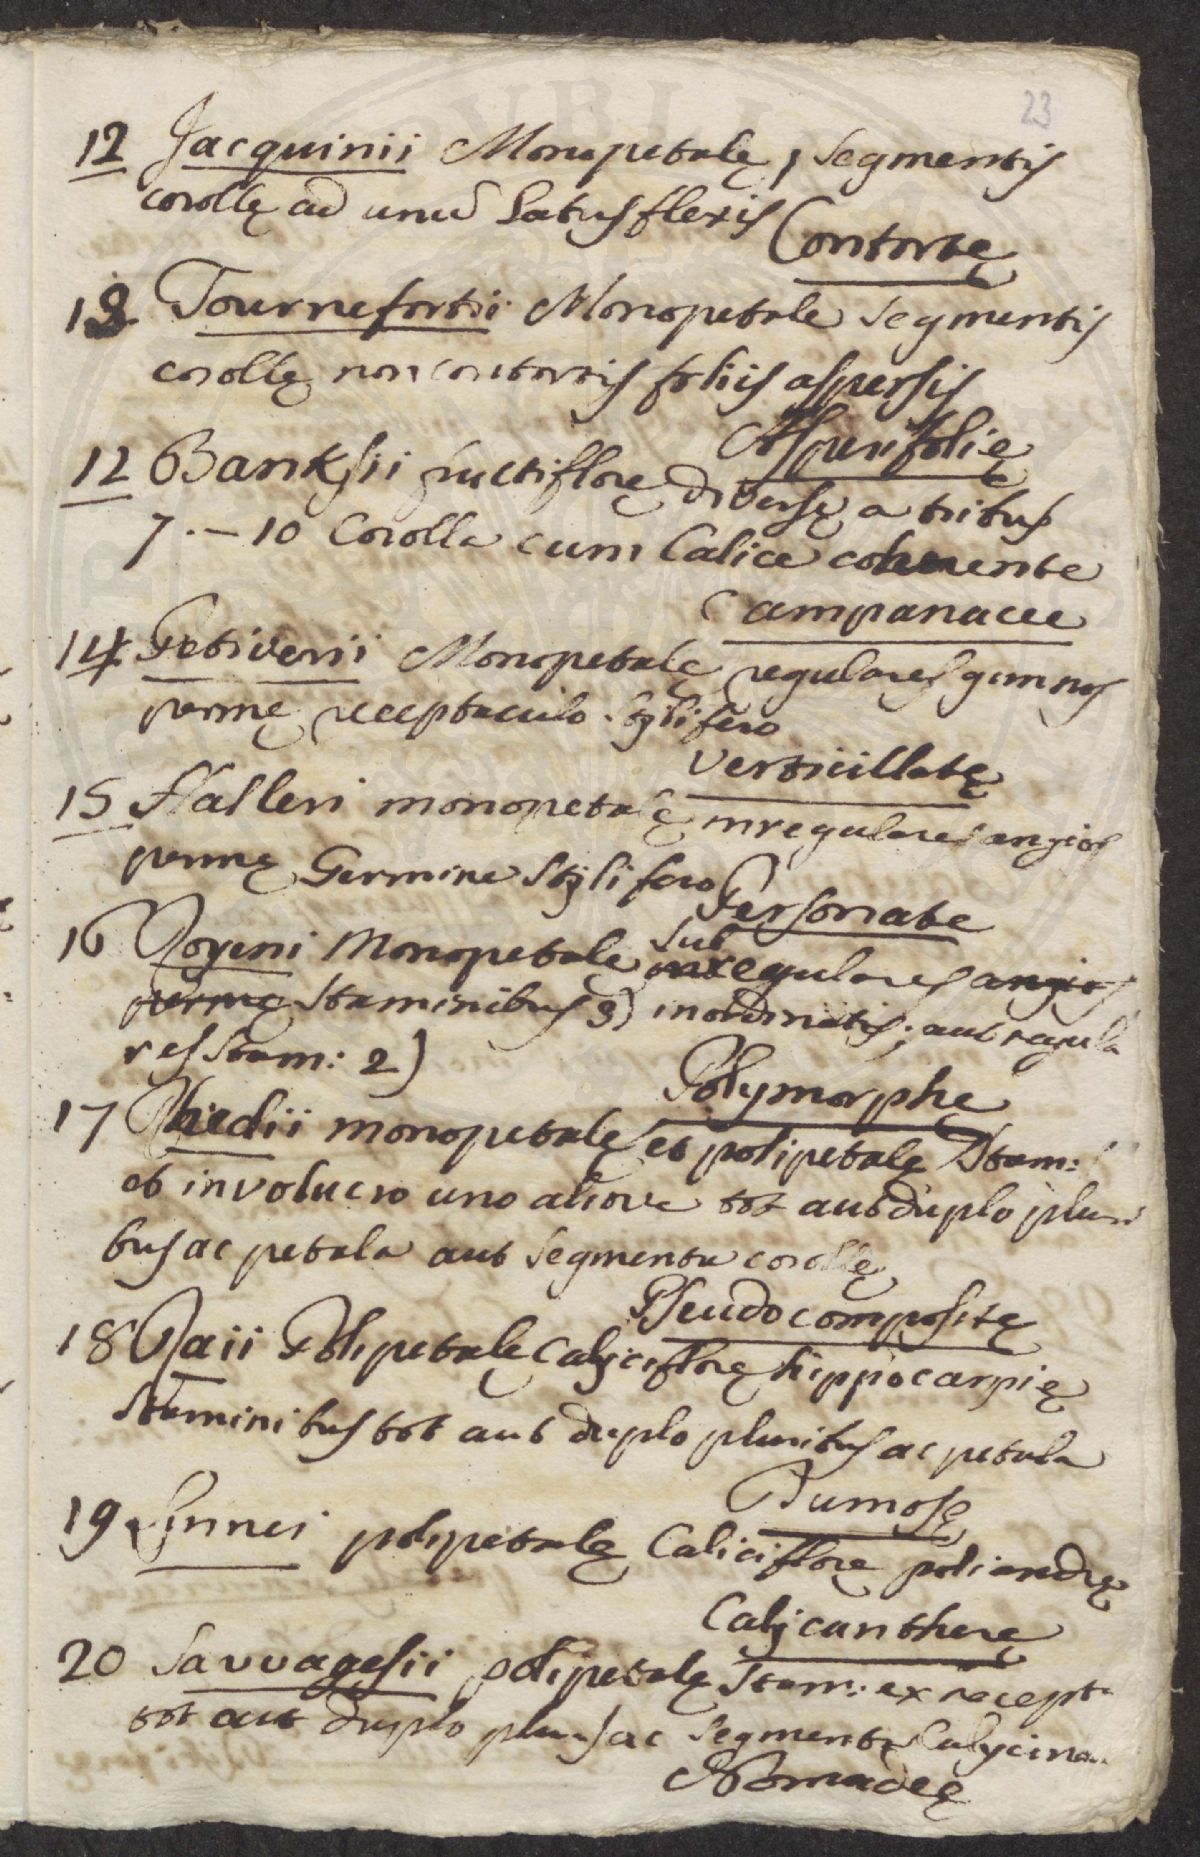 23
12 Jacquinii Monopetalę, segmentis
corollę ad unū Latus flexis
Contortę
13 Tournefortii Monopetale segmentis
corollę non contortis foliis aspersis
Asperifolię
12 Banksii fructiflorę diversę a tribus
7.-10 Corolla cum Calice coherente
Campanacee
14 Petiverii Monopetalę regulares gimnos
permę receptaculo stylifero
Verticillatę
15 Halleri monopetalę irregulares angios
permę Germine stylifero
Personate
16 Royeni Monopetale sub
regulares angios
permę staminibus 3) inordinatis; aut regula
res stam: 2)
Polymorphe
17 Rhedii monopetalę et polipetalę Stam:
et involucro uno aliove tot aut duplo pluri
bus ac petala aut segmenta corollę
Pseudocompositę
18 Raii Polipetalę Calyciflorę hippocarpię
staminibus tot aut duplo pluribus ac petala
Dumosę
19 Linnei polipetalę Caliciflorę poliandrę
Calycantherę
20 Sauvagesii polipetalę Stam: ex recept
tot aut duplo plus ac segmenta Calycina
Nomadeę